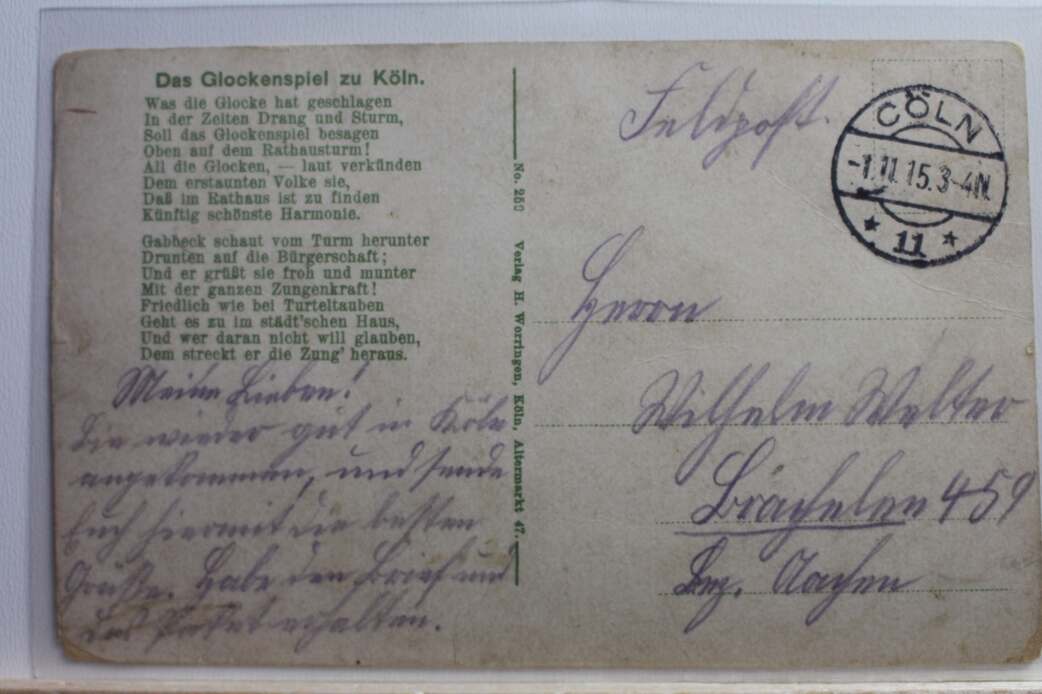 Das Glockenspiel zu Köln.
Was die Glocke hat geschlagen
In der Zeiten Drang und Sturm,
Soll das Glockenspiel besagen
Oben auf dem Rathausturm!
All die Glocken, — laut verkünden
Dem erstaunten Volke sie,
Daß im Rathaus ist zu finden
Künftig schönste Harmonie.
Gabbeck schaut vom Turm herunter
Drunten auf die Bürgerschaft;
Und er grüßt sie froh und munter
Mit der ganzen Zungenkraft!
Friedlich wie bei Turteltauben
Geht es zu im städt'schen Haus,
Und wer daran nicht will glauben,
Dem streckt er die Zung' heraus.
Meine Lieben!
Bin wieder gut in Köln
angekommen, und sende
Euch hiermit die besten
Grüße. Habe den Brief und
das Paket erhalten.
No. 250 Verlag H. Worringen, Köln, Altermarkt 47.
Feldpost.
CÖLN
-1.11.15.3-4N.
* 11 *
Herrn
Wilhelm Welter
Brachelen 459
Bez. Aachen